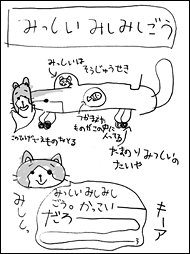 みっしい みしみしごう
みっしいは
そうじゅうせき
つかまえた
ものがこの中に
入ってる
たまのり みっしいの
たいや
みっしい みしみし
ごう。かってい
だろ
みしっ
キーア